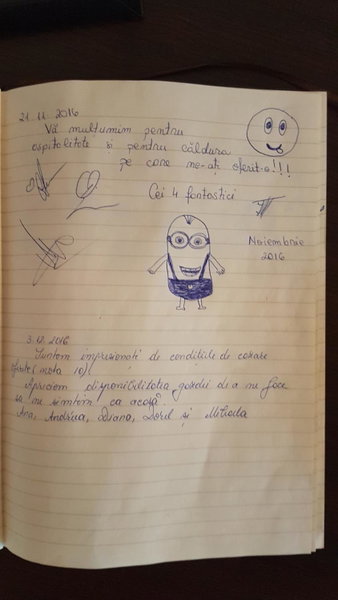 21.11.2016
Vă multumim pentru
ospitalitate si pentru căldura
pe care ne-ați oferit-o!!!
Cei 4 fantastici
Noiembrie
2016
3.12.2016
Suntem impresionati de conditiile de cazare
oferite (nota 10).
Apreciem disponibilitatea gazdei de a ne face
sa ne simtim ca acasă.
Ana, Andreea, Diana, Dorul și Mihaela